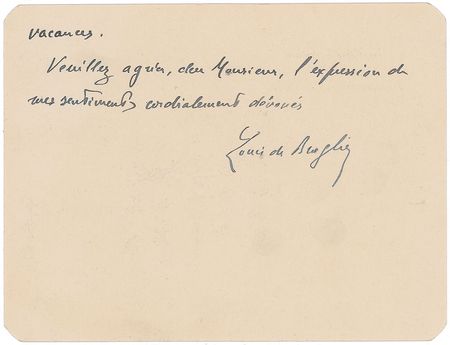 vacances.
Veuillez agréer, cher Monsieur, l'expression de
mes sentiments cordialement dévoués
Louis de Broglie